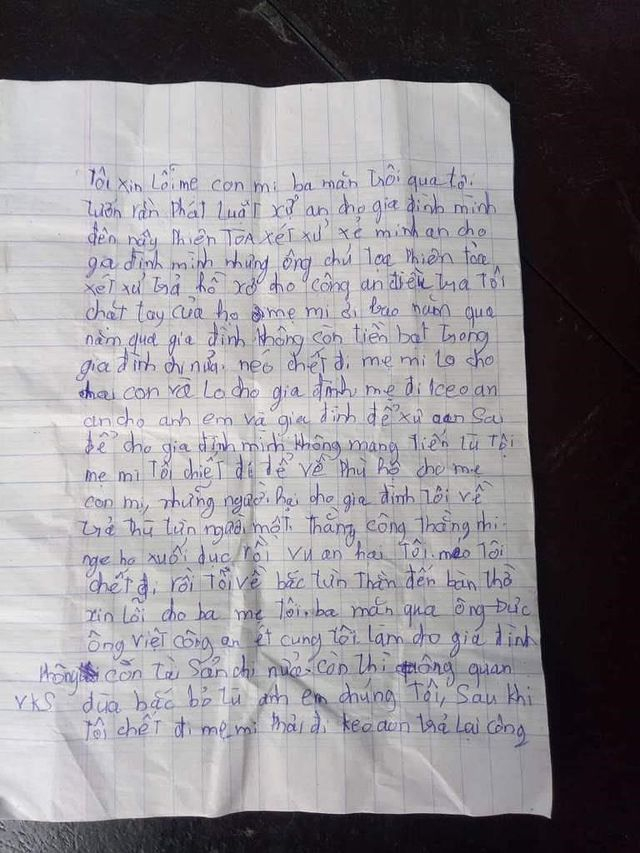 Tôi xin Lỗi mẹ con mi ba măn trôi qua tô.
Luôn rằn Phát Luật xử an cho gia đình mình
đến nây Phiên TOA xét xử xẻ minh an cho
gia đình mình nhưng ông chủ tọa Phiên tòa
xét xử trả hồ xơ cho công an điều tra Tôi
chặt tay của họ mẹ mi đi bao năm qua
năm quạ gia đình không còn tiền bạt trong
gia đình chi nửa. néo chết đi mẹ mi Lo cho
hai con và Lo cho gia đình, mẹ đi keo an
an cho anh em và gia đình để xử oan Sai
để cho gia đình mình không mang Tiền tù Tội
mẹ mi Tôi chiết đi để về Phụ hộ cho mẹ
con mi, những người hại cho gia đình tôi về
trả thù từn người một, thằng công thằng nhi
nge họ xuối dục rồi vu an hai Tôi. néo Tôi
chết đi rồi Tôi về bắc từn Thằn đến bàn thờ
xin lỗi cho ba mẹ Tôi. ba măn qua ông Đức
ông việt công an ét cung tôi Làm cho gia đình
không còn tài Sản chi nửa. còn thì ông quan
VKS dùa bắc bỏ tù anh em chúng Tôi, Sau khi
Tôi chết đi mẹ mi thải đi keo oan trả Lại công